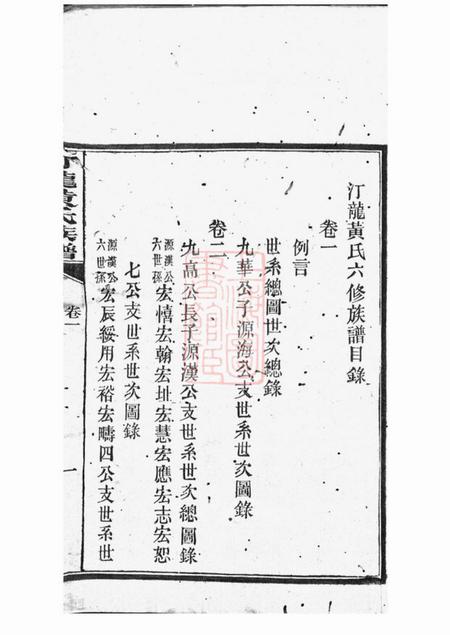 汀龍黃氏六修族譜目錄
卷一
例言
世系總圖世次總錄
九華公子源海公支世系世次圖錄
卷二
九高公長子源漢公支世系世次總圖錄
源漢公六世孫宏憘宏翰宏址宏慧宏應宏志宏恕
七公支世系世次圖錄
源漢公六世孫宏辰綏用宏裕宏疇四公支世系世
龍黃氏族譜
卷一
一